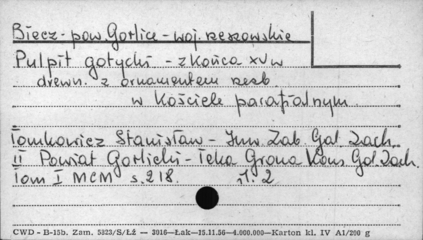 Biecz - pow. Gorlice - woj. rzeszowskie
Pulpit gotycki - z końca XV w
drewn. z ornamentem rzeźb.
w Kościele parafialnym
Tomkowicz Stanisław - Inw. Zab. Gal. Zach.
II Powiat Gorlicki - Teka Grona Kons. Gal. Zach.
Tom I MCM s. 218. il. 2
CWD - B-15b. Zam. 5823/S/Łż — 3016—Łak—15.11.56—4.000.000—Karton kl. IV A1/200 g